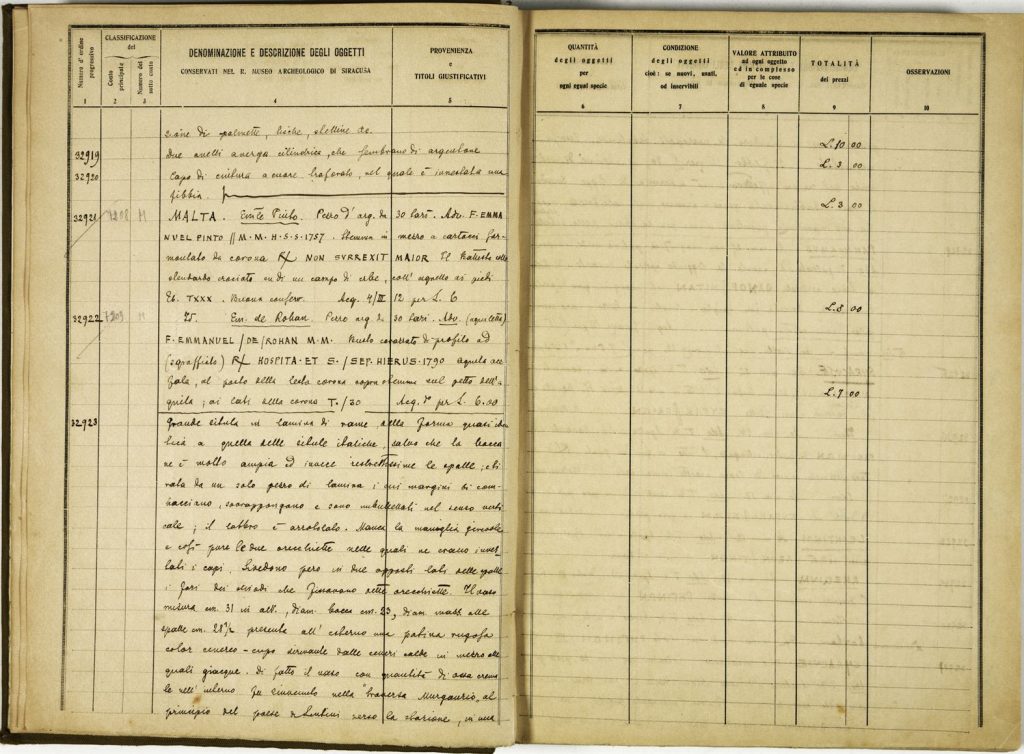 Numero d'ordine progressivo
CLASSIFICAZIONE del
Conto principale
Numero del sotto conto
DENOMINAZIONE E DESCRIZIONE DEGLI OGGETTI
CONSERVATI NEL R. MUSEO ARCHEOLOGICO DI SIRACUSA
PROVENIENZA
e
TITOLI GIUSTIFICATIVI
1 2 3 4 5
di palmette, lische, stelline &c.
32919 Due anelli a verga cilindrica, che sembrano di argentone
32920 Capo di cintura a cuore traforato, nel quale è innestata una
fibbia.
32921 7208 M MALTA. Em.le Pinto. Pezzo d'arg. da 30 tarì. Adv. F. EMMA
NVEL PINTO // M. M. H. S. S. 1757. Stemma in mezzo a cartocci sor-
montato da corona R/ NON SVRREXIT MAIOR Il Battista collo
stendardo crociato su di un campo di erbe, coll'agnello ai piedi
T XXX. Buona conserv. Acq. 4/III 12 per L. 6
32922 7209 M Id. Em. de Rohan. Pezzo arg. da 30 tarì. Adv. (aquiletta)
F. EMMANUEL / DE / ROHAN M. M. Busto corazzato di profilo a d
(sgraffiato) R/ HOSPITA. ET S. / SEP. HIERUS. 1790 aquila
al posto della testa corona sopra stemma sul petto dell'a-
quila; ai lati della corona T. / 30 Acq. per L. 6.00
32923 Grande situla in lamina di rame, della forma quasi iden
tica a quella delle situle italiche, salvo che la bocca
ne è molto ampia ed invece ristrettissime le spalle;
rata da un solo pezzo di lamina i cui margini si com-
baciano, sovrappongono e sono imbullettati nel senso verti
cale; il labbro è arrotolato. Manca la maniglia girevole
e così pure le due orecchiette nelle quali ne erano inne-
stati i capi. Si vedono però in due opposti lati delle spalle
i fori dei chiodi che fissavano dette orecchiette. Il vaso
misura cm. 31 in alt., diam. bocca cm. 23, diam. mass. alle
spalle cm. 28 1/2 presenta all'esterno una patina rugosa
color cenereo-cupo derivante dalle ceneri calde in mezzo alle
quali giacque. Di fatto il vaso con quantità di ossa crema
te nell'interno fu rinvenuto nella "traversa Murganzio" al
principio del paese di Lentini verso la stazione, in una
QUANTITÀ
degli oggetti
per
ogni egual specie
6
CONDIZIONE
degli oggetti
cioè: se nuovi, usati,
od inservibili
7
VALORE ATTRIBUITO
ad ogni oggetto
ed in complesso
per le cose
di eguale specie
8
TOTALITÀ
dei prezzi
9
OSSERVAZIONI
10
L. 10 00
L. 3 00
L. 3 00
L. 8 00
L. 7 00